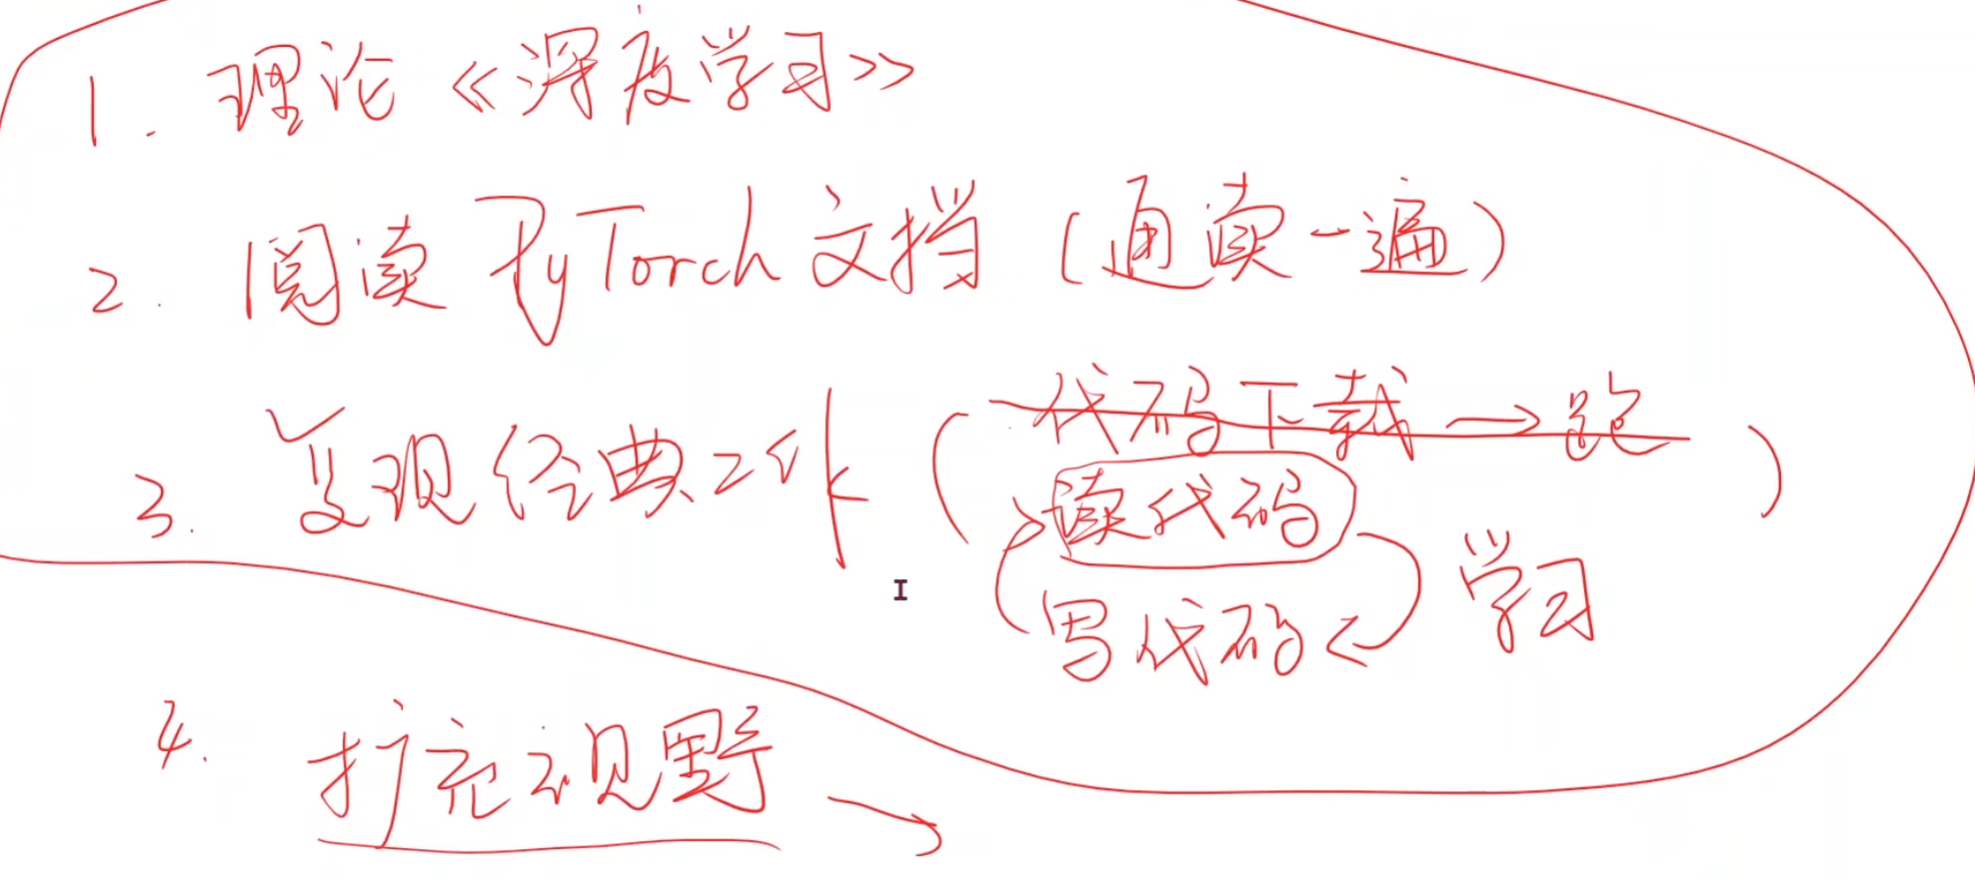 1. 理论《深度学习》
2. 阅读 PyTorch 文档 (通读一遍)
3. 复现经典工作 (代码下载 → 跑)
读代码
写代码
学习
4. 扩充视野 →